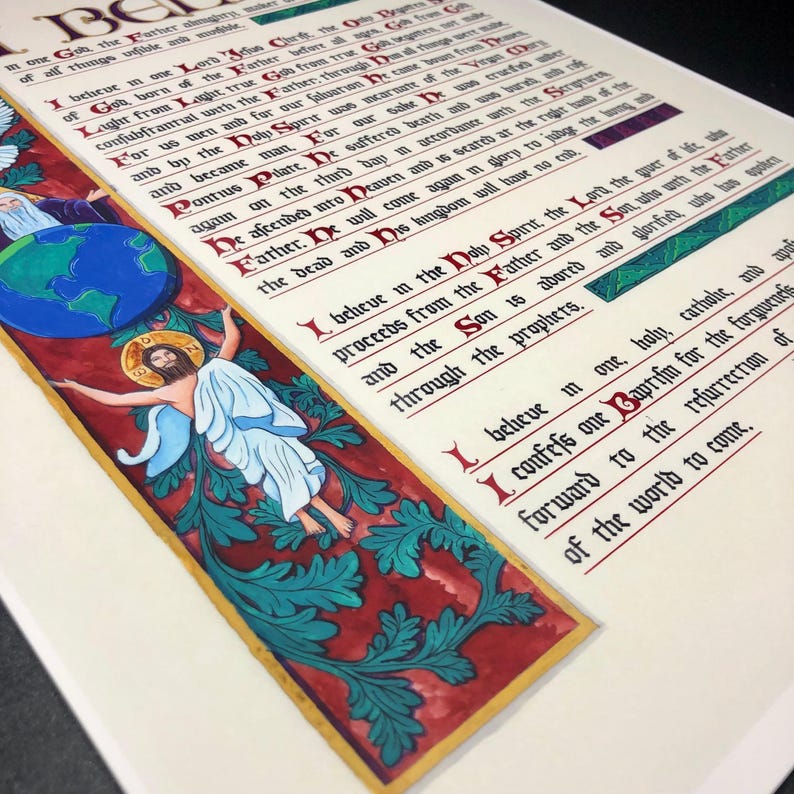 I BEL
in one God, the Father almighty, maker of
of all things visible and invisible.
I believe in one Lord Jesus Christ, the Only Begotten S
of God, born of the Father before all ages. God from God,
Light from Light, true God from true God, begotten, not made
consubstantial with the Father; through Him all things were made.
For us men and for our salvation He came down from Heaven
and by the Holy Spirit was incarnate of the Virgin Mary
and became man. For our sake He was crucified under
Pontius Pilate, He suffered death and was buried and rose
again on the third day in accordance with the Scriptures.
He ascended into Heaven and is seated at the right hand of the
Father. He will come again in glory to judge the living and
the dead and His kingdom will have no end.
I believe in the Holy Spirit, the Lord, the giver of life, who
proceeds from the Father and the Son, who with the Father
and the Son is adored and glorified, who has spoken
through the prophets.
I believe in one, holy, catholic, and apo
I confess one Baptism for the forgiveness
forward to the resurrection of
of the world to come.